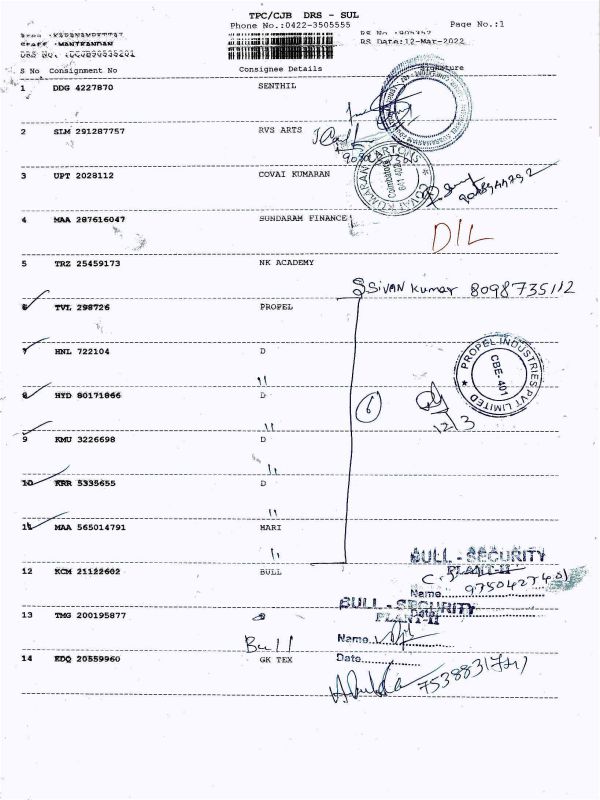 TPC/CJB DRS - SUL
Phone No.:0422-3505555 Page No.:1
DRS Date:12-Mar-2022
DRS No. :DCJB90535201
S No Consignment No Consignee Details Signature
1 DDG 4227870 SENTHIL
2 SLM 291287757 RVS ARTS
3 UPT 2028112 COVAI KUMARAN
4 MAA 287616047 SUNDARAM FINANCE
D/L
5 TRZ 25459173 NK ACADEMY
SIVAN Kumar 8098735112
6 TVL 298726 PROPEL
7 HNL 722104 D
PROPEL INDUSTRIES PVT LIMITED
CBE-401
8 HYD 80171866 D
6
12/3
9 KMU 3226698 D
10 KRR 5335655 D
11 MAA 565014791 HARI
BULL - SECURITY
PLANT-II
12 KCM 21122602 BULL
Name
Date
BULL - SECURITY
PLANT-II
13 TMG 200195877
Bull
Name
Date
14 KDQ 20559960 GK TEX